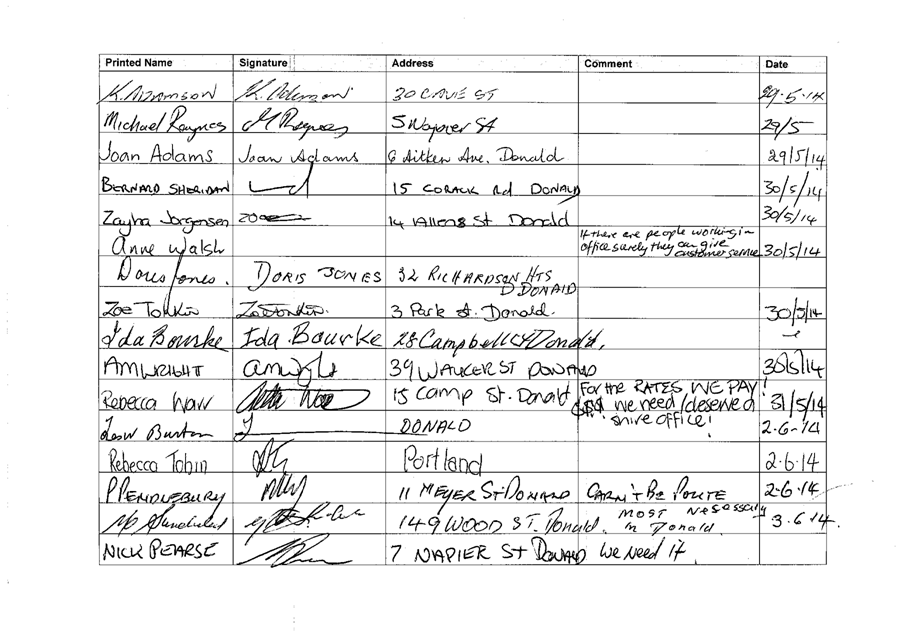 Printed Name Signature Address Comment Date
K. ADAMSON K. Adamson 30 CAVIE ST 29.5.14
Michael Raynes M Raynes 5 Napier St 29/5
Joan Adams Joan Adams 6 Aitken Ave. Donald 29/5/14
BERNARD SHERIDAN 15 CORACK Rd DONALD 30/5/14
Zayha Jorgensen 14 Allens St Donald 30/5/14
If there are people working in
Anne Walsh office surely they can give customer service 30/5/14
Doris Jones. DORIS JONES 32 RICHARDSON HTS
DONALD
Zoe Tonkin Zoe Tonkin. 3 Park st. Donald. 30/5/14
Ida Bourke Ida Bourke 28 Campbell St Donald,
AM WRIGHT 39 WALKER ST DONALD 30/5/14
For the RATES WE PAY!
Rebecca 15 Camp St. Donald $$$ we need/deserve a 31/5/14
shire office!
Burton DONALD 2-6-14
Rebecca Tobin Portland 2.6.14
P PENDLEBURY 11 MEYER St DONALD CARN'T BE POLITE 2-6-14
MOST NECESSARY
149 WOOD ST. Donald. in Donald 3.6.14.
NICK PEARSE 7 NAPIER St DONALD We Need it